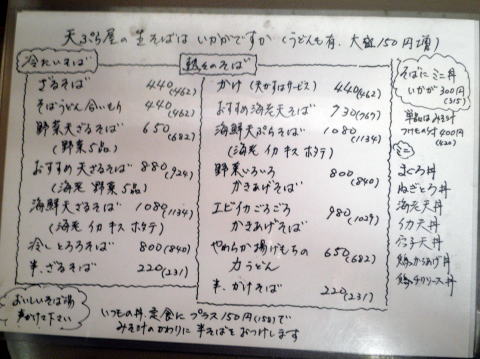 天ぷら屋の生そばはいかがですか(うどんも有、大盛150円増)
冷たいそば
ざるそば 440(462)
そばうどん合いもり 440(462)
野菜天ざるそば 650(682)
(野菜5品)
おすすめ天ざるそば 880(924)
(海老 野菜5品)
海鮮天ざるそば 1080(1134)
(海老 イカ キス ホタテ)
冷しとろろそば 800(840)
半、ざるそば 220(231)
熱々のそば
かけ(天かすはサービス) 440(462)
おすすめ海老天そば 730(767)
海鮮天ぷらそば 1080(1134)
(海老 イカ キス ホタテ)
野菜いろいろ
かきあげそば 800(840)
エビイカごろごろ
かきあげそば 980(1029)
やわらか揚げもちの
力うどん 650(682)
半、かけそば 220(231)
そばにミニ丼
いかが300円
(315)
単品はみそ汁
つけもの付400円
(420)
ミニ
まぐろ丼
ねぎとろ丼
海老天丼
イカ天丼
穴子天丼
鶏からあげ丼
鶏チリソース丼
おいしいそば湯
声かけて下さい
いつもの丼、定食にプラス150円(158)で
みそ汁のかわりに半そばをおつけします